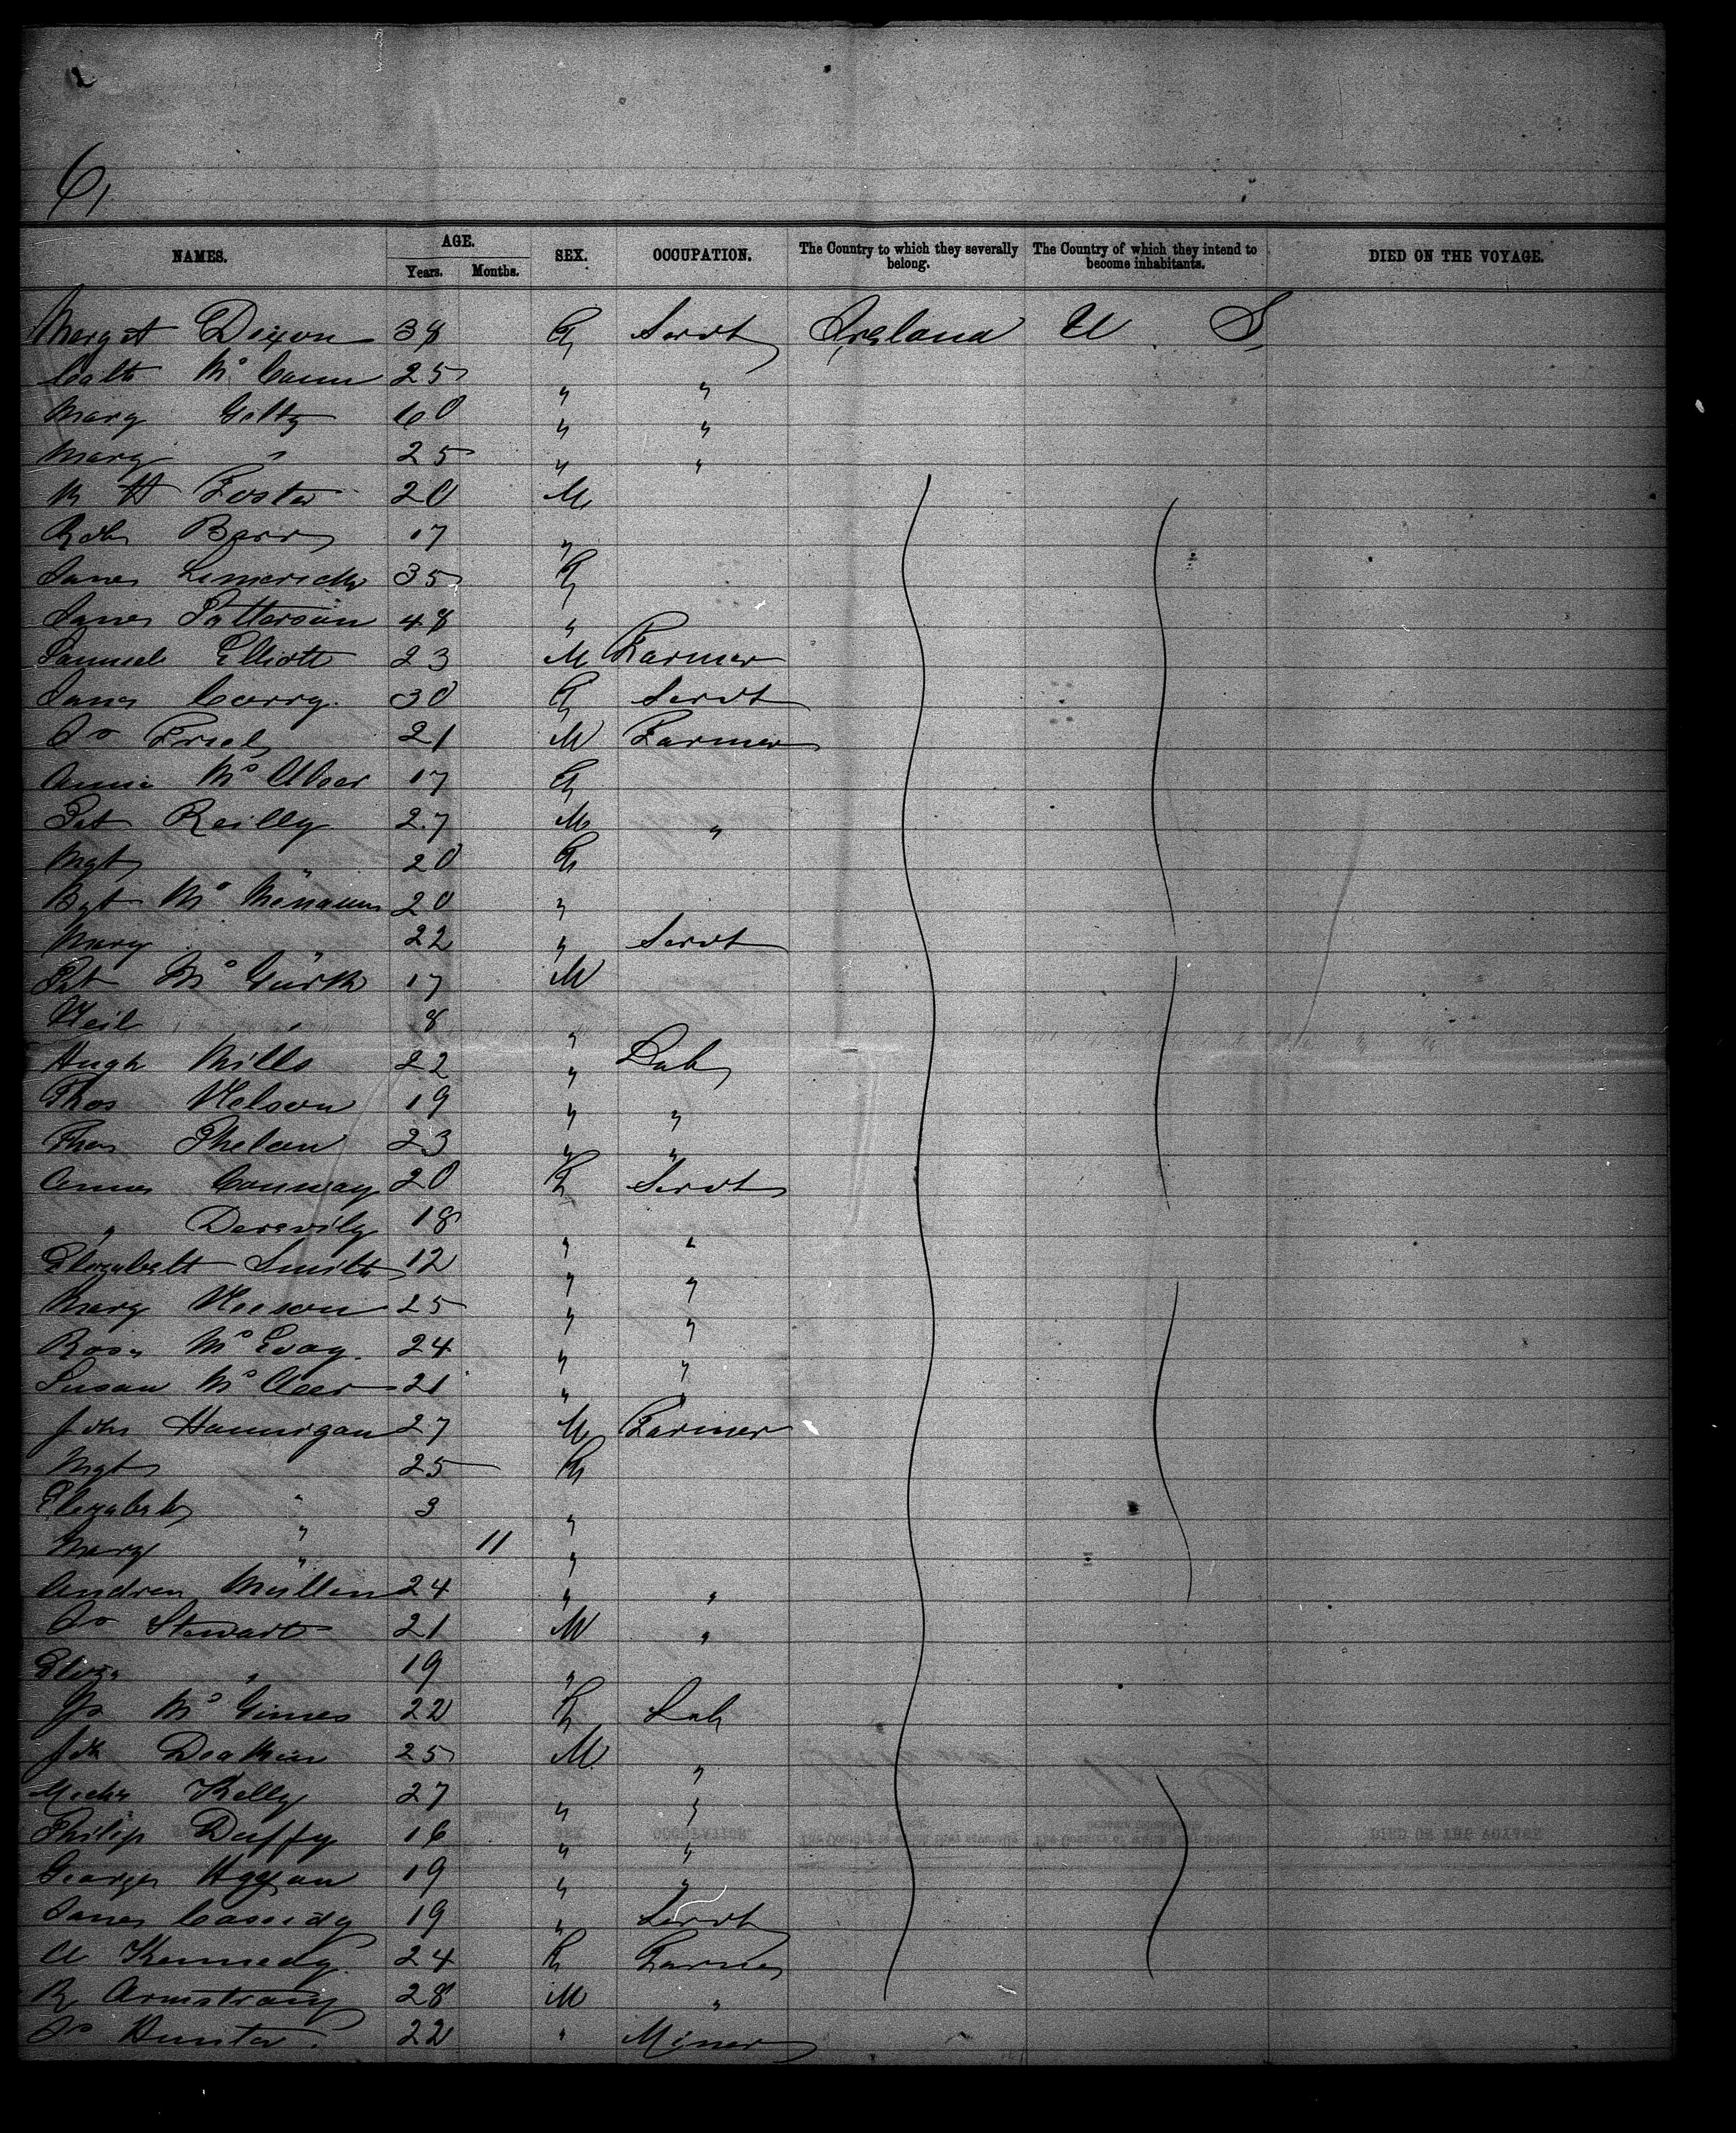 6,
NAMES. AGE. Years. Months. SEX. OCCUPATION. The Country to which they severally belong. The Country of which they intend to become inhabitants. DIED ON THE VOYAGE.
Margt Dixon 38 F Servt Ireland U S
Cath McCann 25 " "
Mary 60 " "
Mary " 25 " "
Foster 20 M
Robt Barr 17 "
Jane Limerick 35 F
Jane Patterson 48 "
Samuel Elliott 23 M Farmer
Jane Corry 30 F Servt
Jo Friel 21 M Farmer
Annie Mc 17 F
Pat Reilly 27 M "
Mgt " 20 F
Bgt McMenamin 20 "
Mary " 22 " Servt
Pat McGurk 17 M
Neil " 8 "
Hugh Mills 22 " Lab
Thos Nelson 19 " "
Thos Phelan 23 " "
Annie Conway 20 F Servt
" 18 " "
Elizabeth Smith 12 " "
Mary Neeson 25 " "
Rose McEvoy 24 " "
Susan McAleer 21 " "
John Hannigan 27 M Farmer
Mgt " 25 F
Elizabeth " 3 "
Mary " 11 "
Andrew Mullen 24 " "
Jo Stewart 21 M "
Eliza " 19 "
McGinnes 22 F Lab
Jn Deakin 25 M "
Michl Kelly 27 " "
Philip Duffy 16 " "
George 19 " "
James Cassidy 19 " Servt
A Kennedy 24 F Farmer
R Armstrong 28 M "
Jo Hunter 22 " Miner